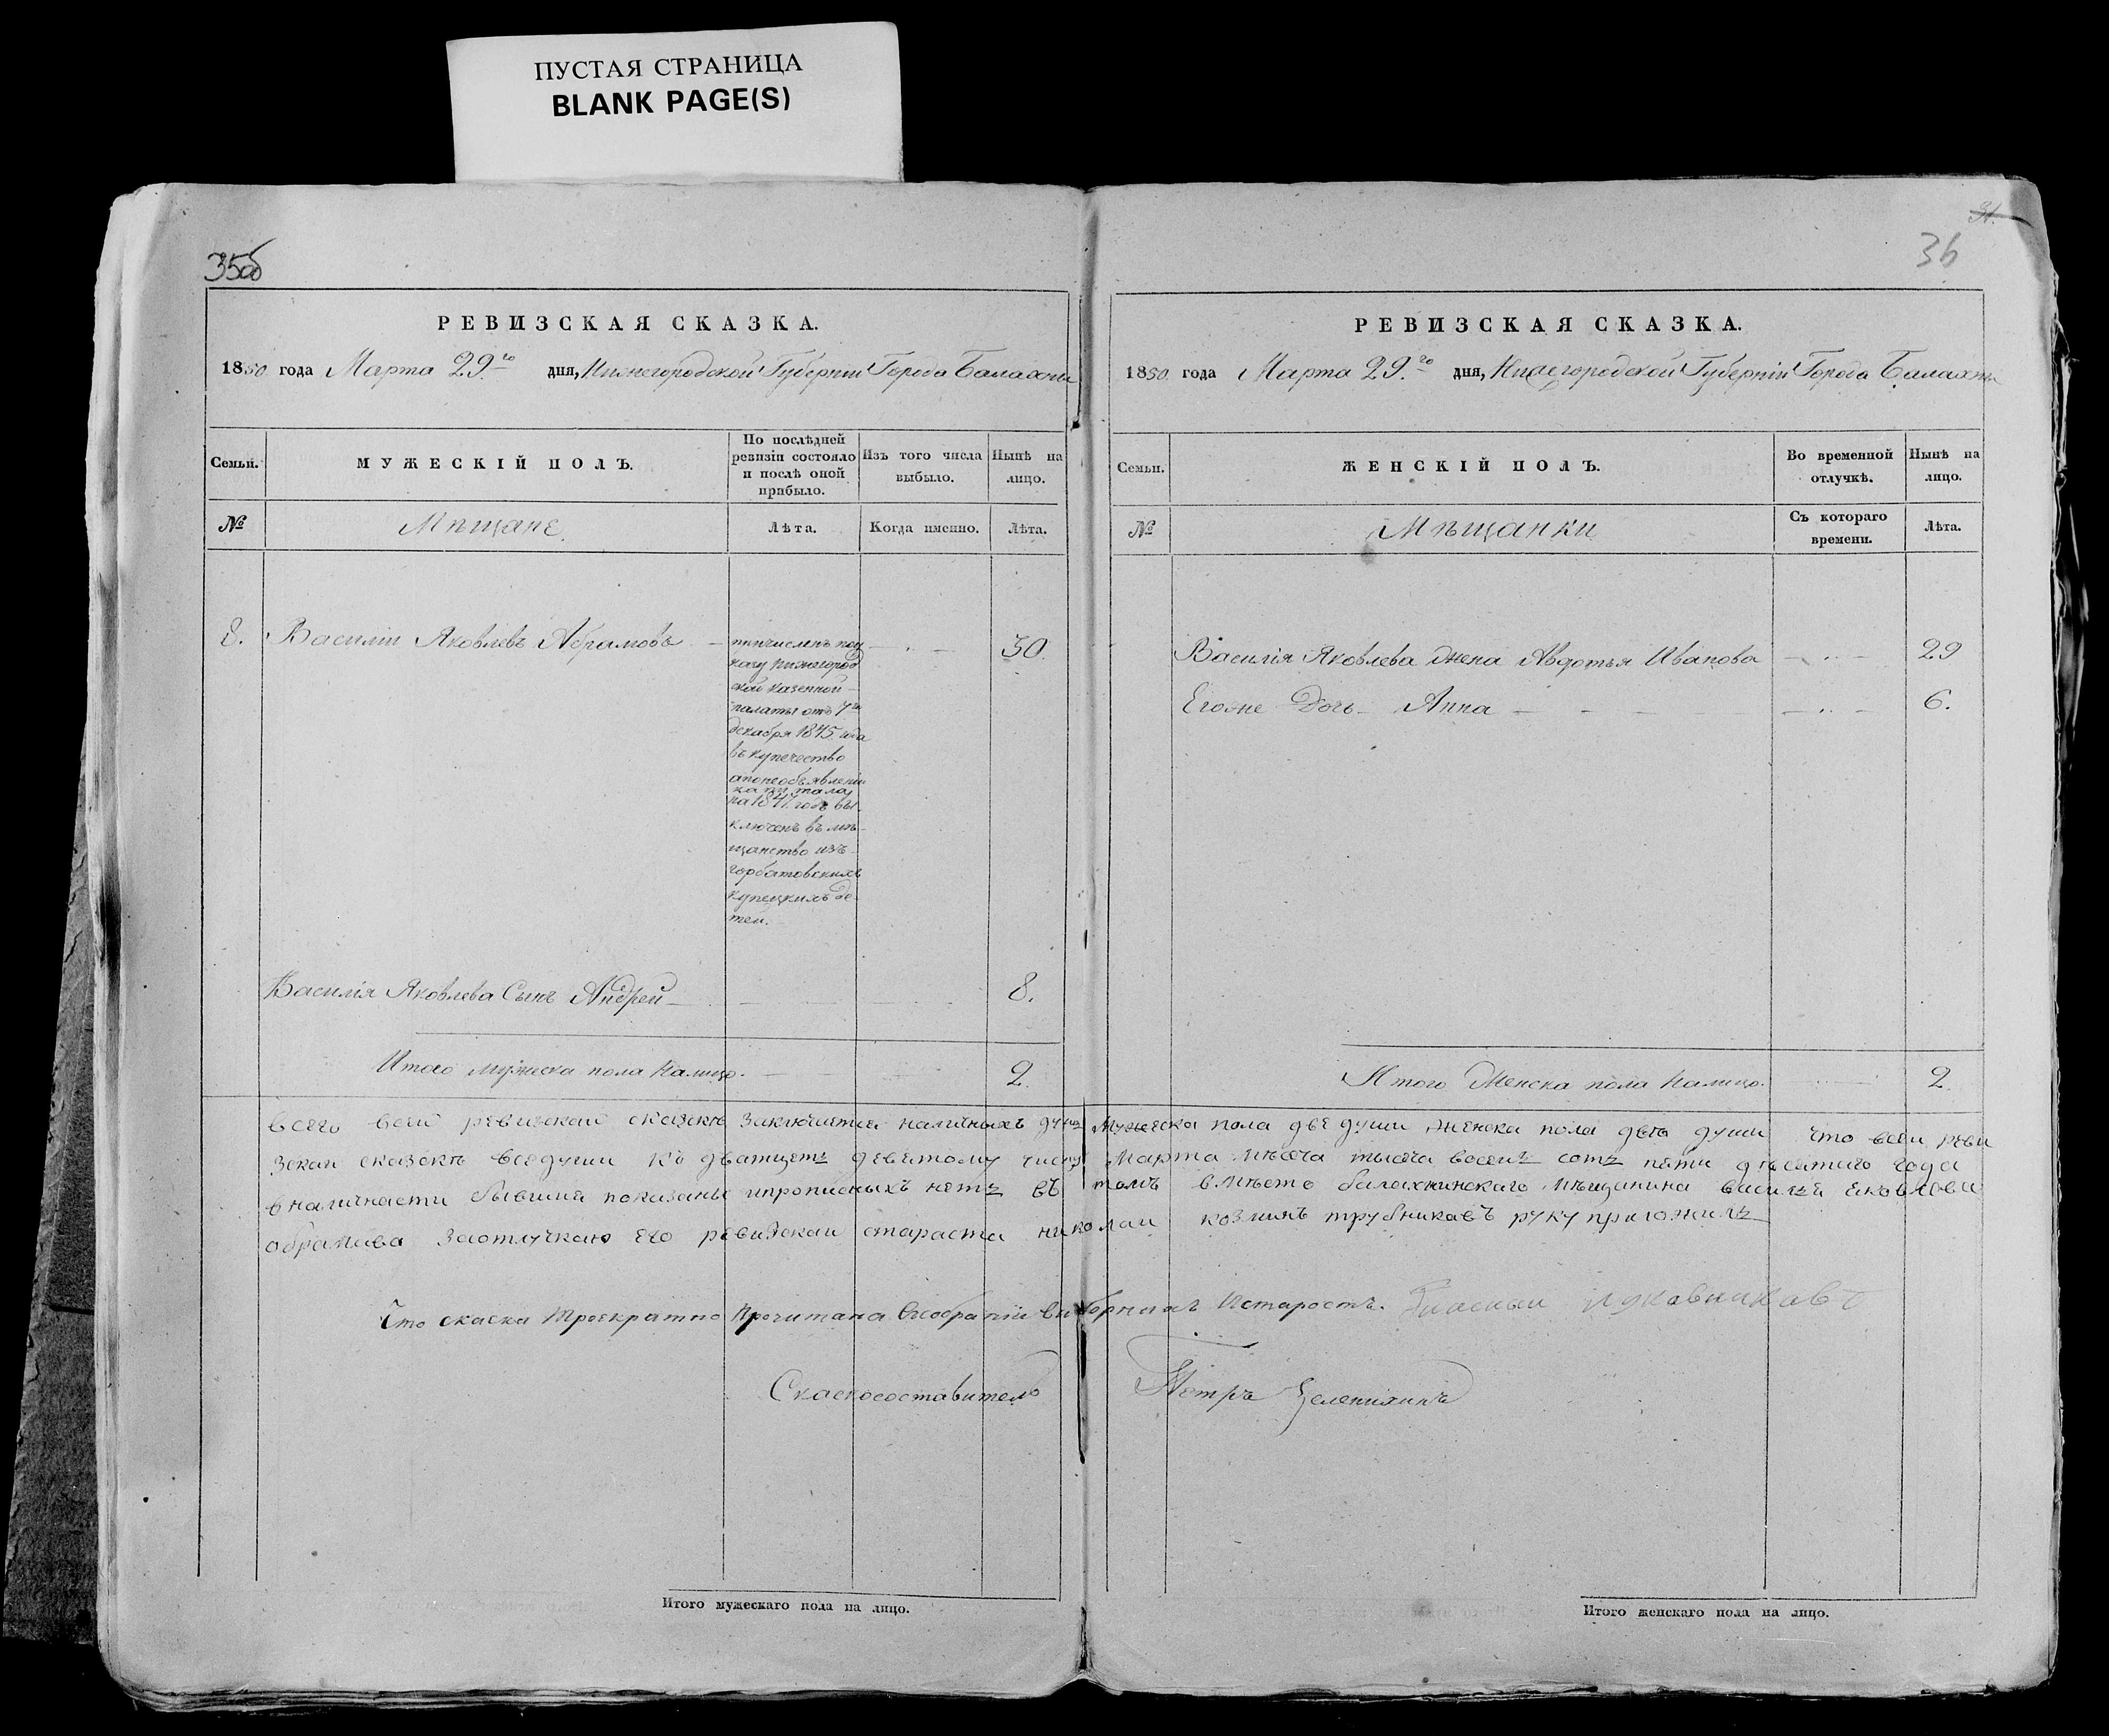 ПУСТАЯ СТРАНИЦА
BLANK PAGE(S)
35об
РЕВИЗСКАЯ СКАЗКА.
1850 года Марта 29го дня, Нижегородской Губернiи Города Балахны
Семьи. МУЖЕСКІЙ ПОЛЪ. По послѣдней ревизіи состояло и послѣ оной прибыло. Изъ того числа выбыло. Нынѣ на лицо.
№ Мѣщане. Лѣта. Когда именно. Лѣта.
8. Василiй Яковлевъ Абрамовъ 30.
причисленъ по у
казу Нижегород
ской казенной
палаты отъ 7го
декабря 1845 года
въ купечество
а по необъявленiи
капитала
на 1847. годъ вы
ключенъ въ мѣ
щанство изъ
горбатовскихъ
купецкихъ де
тей.
Василiя Яковлева Сынъ Андрей 8.
Итого мужеска пола налицо. 2.
31.
36
РЕВИЗСКАЯ СКАЗКА.
1850 года Марта 29.го дня, Нижегородской Губернiи Города Балахны
Семьи. ЖЕНСКІЙ ПОЛЪ. Во временной отлучкѣ. Нынѣ на лицо.
№ Мѣщанки Съ котораго времени. Лѣта.
Василiя Яковлева жена Авдотья Иванова 29
Егоже Дочь Анна 6.
Итого Женска пола налицо. 2.
всего всей ревизской сказкѣ заключаится наличныхъ душъ Мужеска пола две души женска пола двѣ души что всеи реви
зскаи сказскѣ вседуши къ дватцетъ девятому числу Марта мѣсеца тысеча восемъ сотъ пяти десятаго года
вналичнасти бывшие показаны ипрописныхъ нетъ въ томъ вмѣсто балахнинскаго мѣщанина василья Яковлева
абрамова заотлучкаю его ревизскаи стараста николаи козминъ трубникавъ руку приложилъ
Что скаска троекратно прочитана Всобранiи выборныхъ Истаростъ. Гласный Лукавникавъ
Скаскосоставитель Петръ Зеленихинъ
Итого мужескаго пола на лицо.
Итого женскаго пола на лицо.